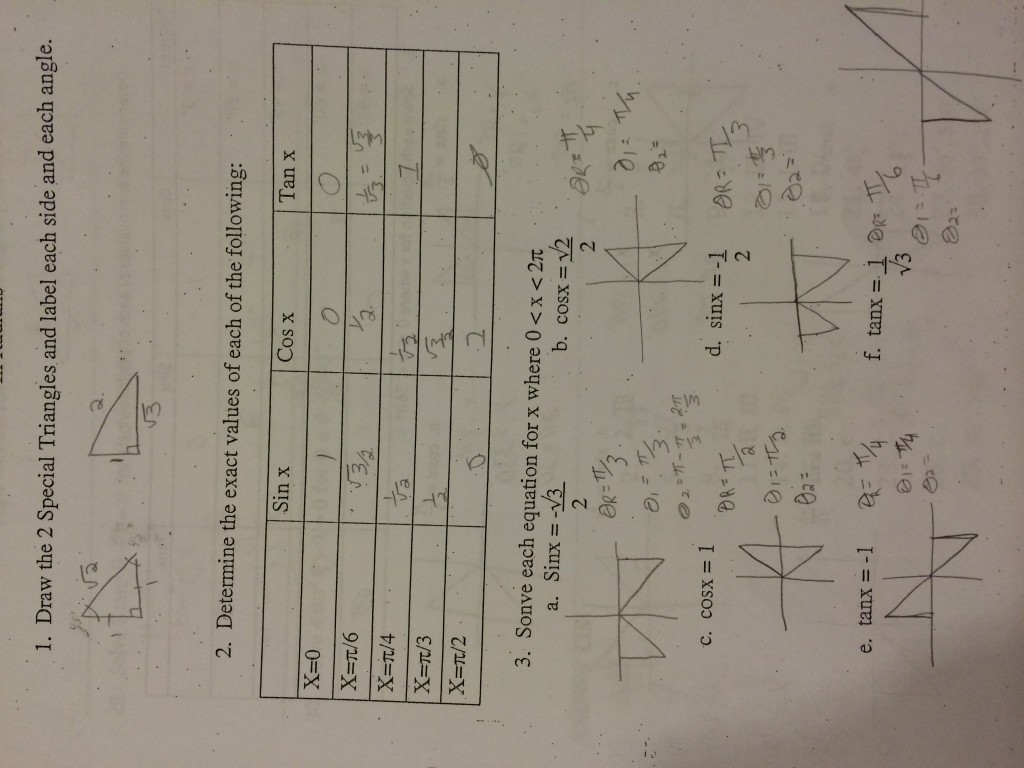 in Radians
1. Draw the 2 Special Triangles and label each side and each angle.
√2
1
1
2
1
√3
2. Determine the exact values of each of the following:
Sin x Cos x Tan x
X=0 1 0 0
X=π/6 √3/2 1/2 1/√3 = √3/3
X=π/4 1/√2 1/√2 1
X=π/3 1/2 √3/2
X=π/2 0 1 ∅
3. Sonve each equation for x where 0 < x < 2π
a. Sinx = -√3/2
θR = π/3
θ1 = π/3
θ2 = π - π/3 = 2π/3
b. cosx = √2/2
θR = π/4
θ1 = π/4
θ2 =
c. cosx = 1
θR = π/2
θ1 = π/2
θ2 =
d. sinx = -1/2
θR = π/3
θ1 = π/3
θ2 =
e. tanx = -1
θR = π/4
θ1 = π/4
θ2 =
f. tanx = 1/√3
θR = π/6
θ1 = π/6
θ2 =